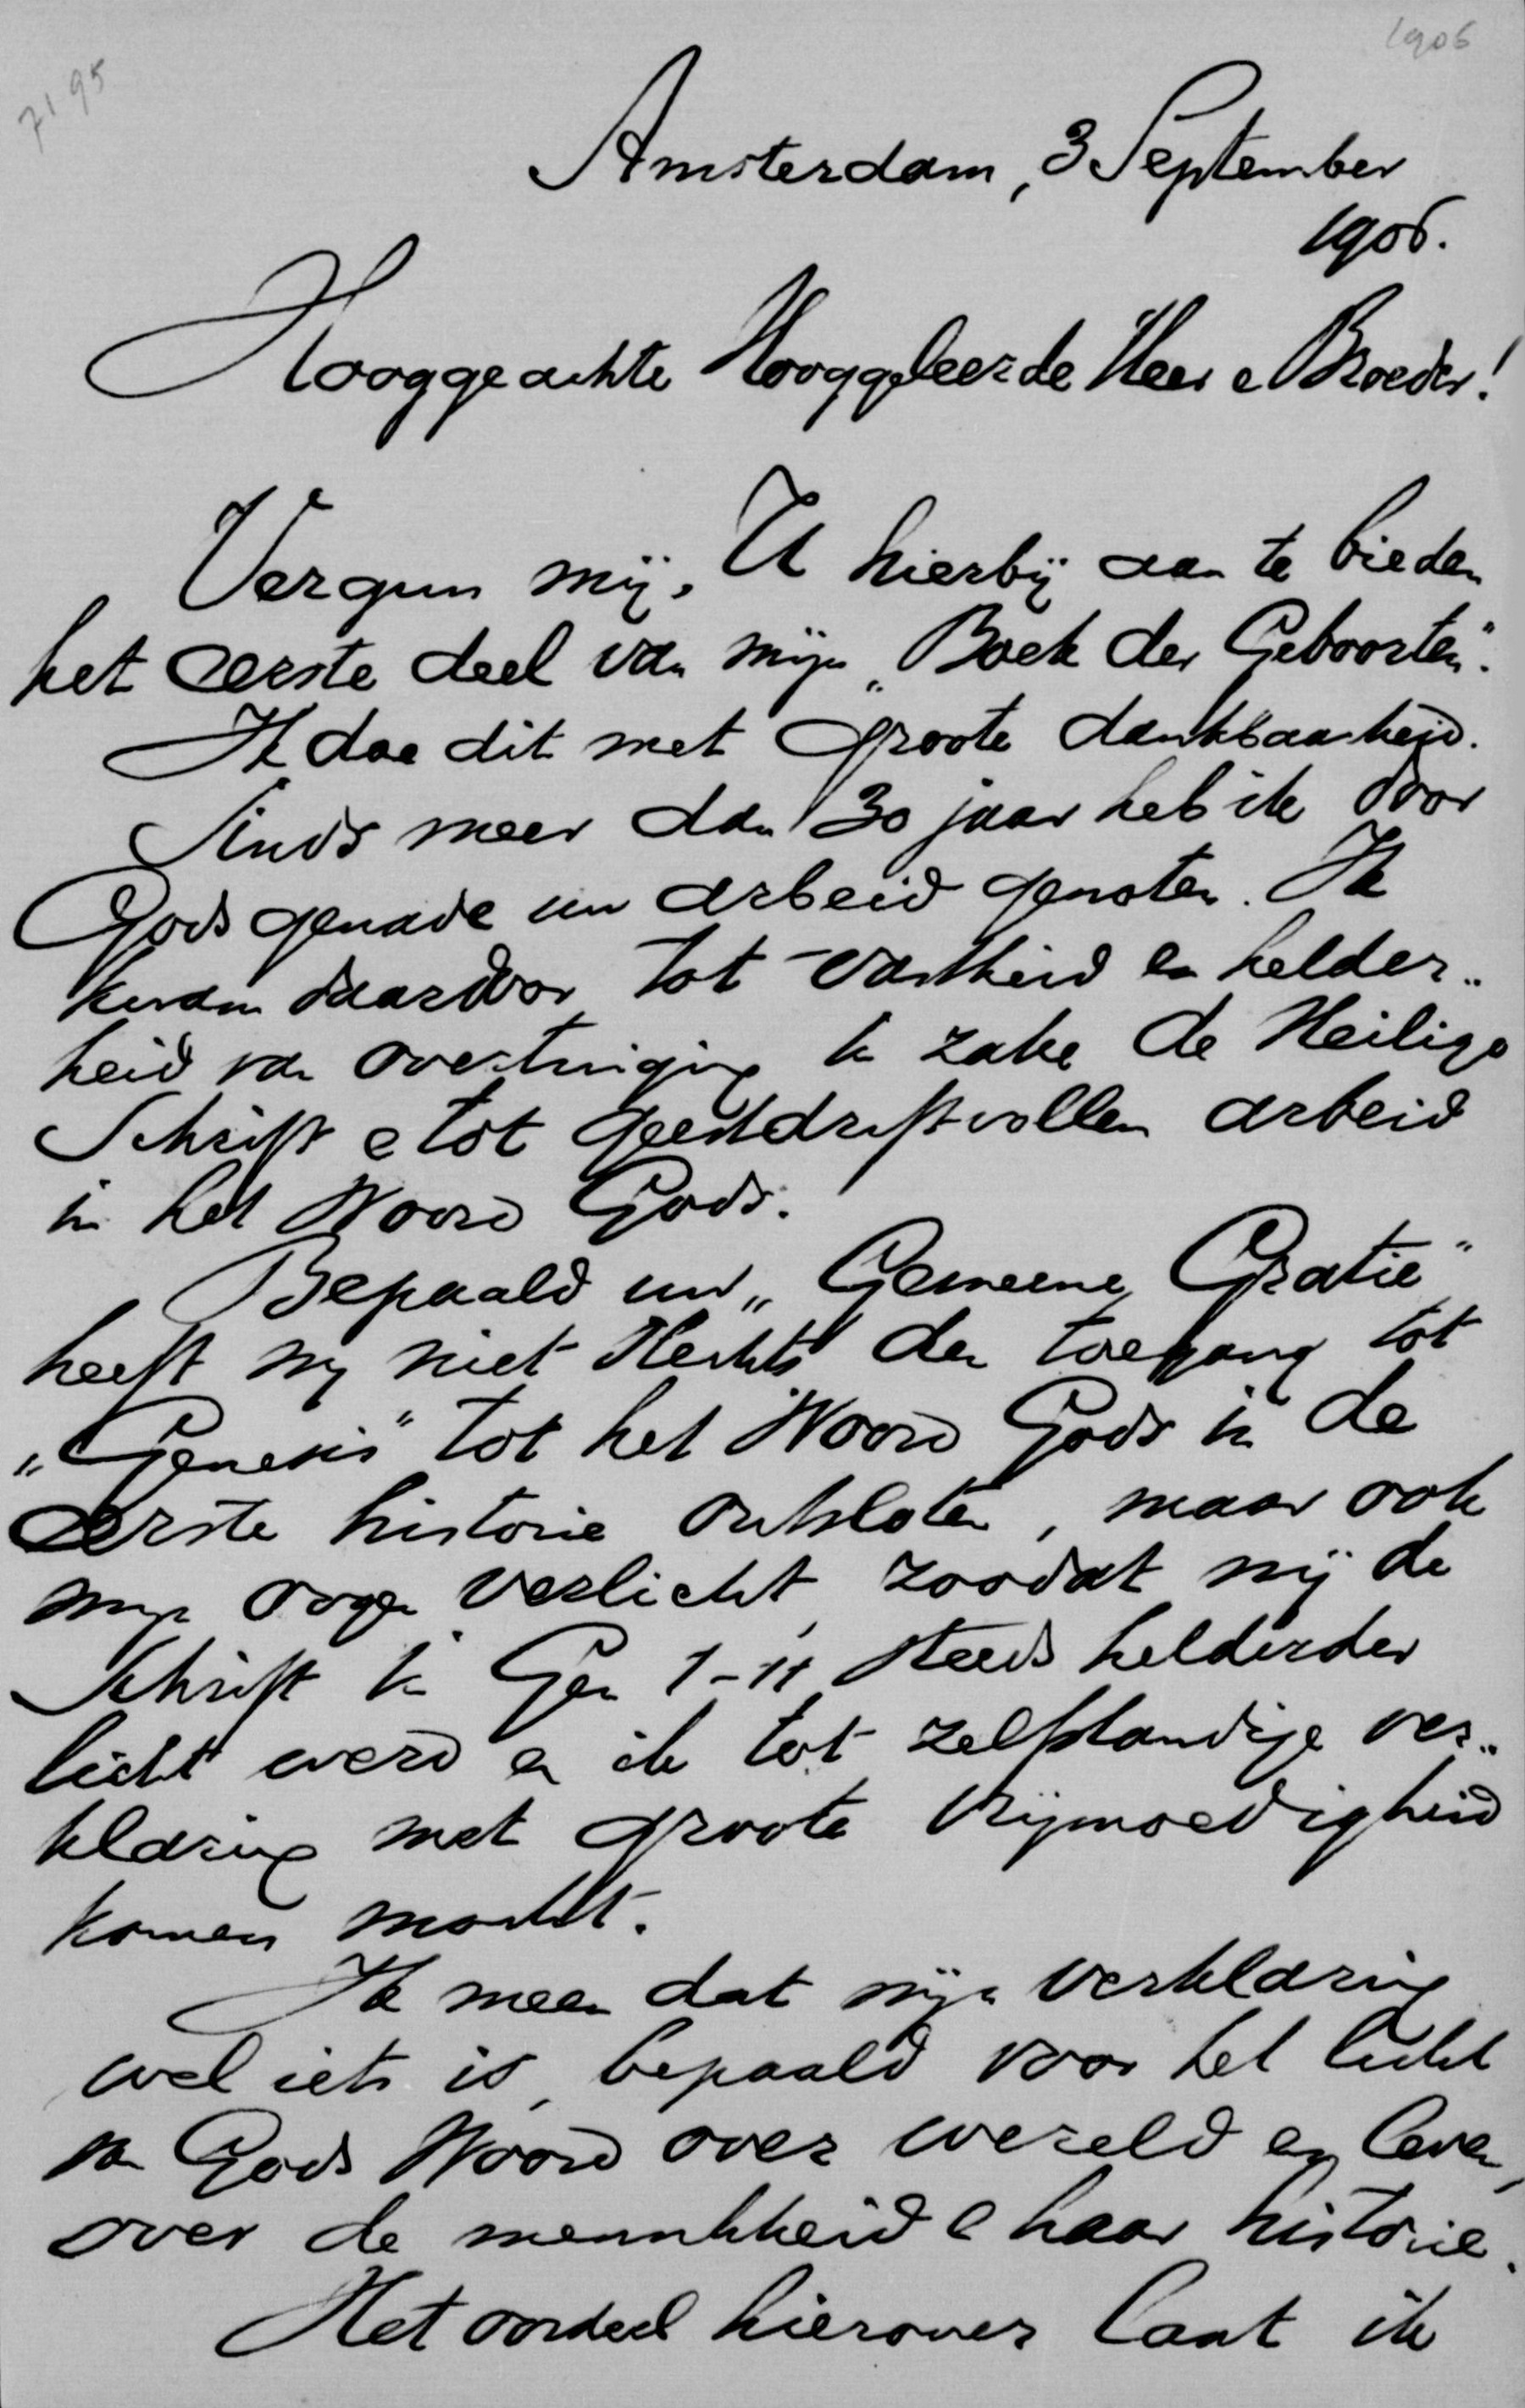 1906
7195
Amsterdam, 3 September
1906.
Hooggeachte Hooggeleerde Heer e Broeder!
Vergun mij, U hierbij aan te bieden
het eerste deel van mijn „Boek der Geboorten".
Ik doe dit met groote dankbaarheid.
Sinds meer dan 30 jaar heb ik door
Gods genade uw arbeid genoten. Ik
kwam daardoor tot vastheid en helder„
heid van overtuiging in zake de Heilige
Schrift e tot geestdriftvollen arbeid
in het Woord Gods.
Bepaald uw „Gemeene Gratie"
heeft mij niet slechts den toegang tot
„Genesis" tot het Woord Gods in de
eerste historie ontsloten, maar ook
mijn oogen verlicht, zoodat mij de
Schrift in Gen 1-11 steeds helderder
licht werd en ik tot zelfstandige ver„
klaring met groote vrijmoedigheid
komen mocht.
Ik meen dat mijn verklaring
wel iets is, bepaald voor het licht
van Gods Woord over wereld en leven,
over de menschheid e haar historie.
Het oordeel hierover laat ik